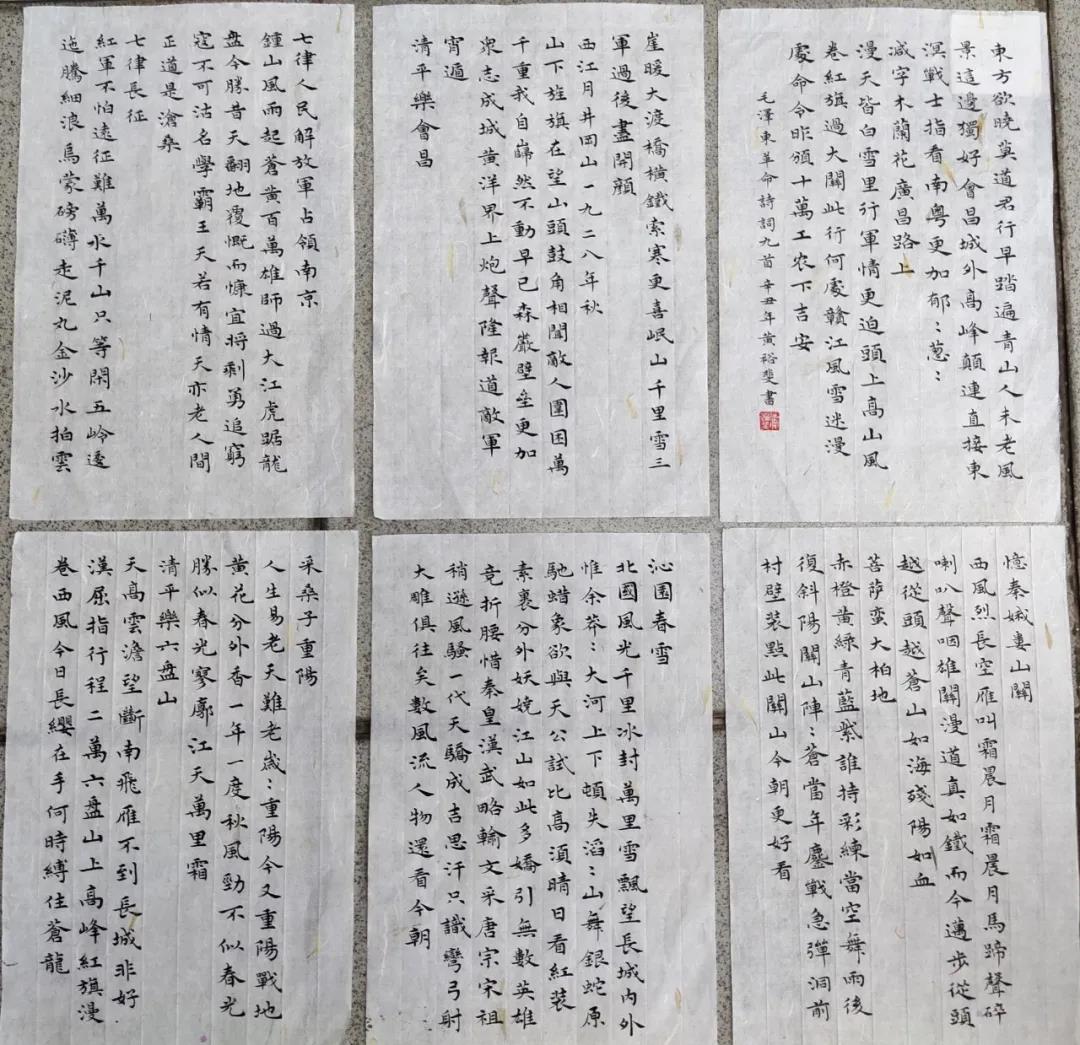 七律人民解放軍占領南京
鍾山風雨起蒼黄百萬雄師過大江虎踞龍
盘今勝昔天翻地覆慨而慷宜將剩勇追窮
寇不可沽名學霸王天若有情天亦老人間
正道是滄桑
七律長征
紅軍不怕遠征難萬水千山只等閑五岭逶
迤騰細浪烏蒙磅礴走泥丸金沙水拍雲
崖暖大渡橋橫鐵索寒更喜岷山千里雪三
軍過後盡開顏
西江月井岡山一九二八年秋
山下旌旗在望山頭鼓角相聞敵人圍困萬
千重我自巋然不動早已森嚴壁壘更加
衆志成城黄洋界上炮聲隆報道敵軍
宵遁
清平樂會昌
東方欲曉莫道君行早踏遍青山人未老風
景這邊獨好會昌城外高峰顛連直接東
溟戰士指看南粤更加郁〻蔥〻
减字木蘭花廣昌路上
漫天皆白雪里行軍情更迫頭上高山風
卷紅旗過大關此行何處贛江風雪迷漫
處命令昨頒十萬工农下吉安
毛澤東革命詩詞九首辛丑年黄裕斐書
采桑子重陽
人生易老天難老歲〻重陽今又重陽戰地
黄花分外香一年一度秋風勁不似春光
勝似春光寥廓江天萬里霜
清平樂六盘山
天高雲澹望斷南飛雁不到長城非好
漢屈指行程二萬六盘山上高峰紅旗漫
卷西風今日長纓在手何時縛住蒼龍
沁園春雪
北國風光千里冰封萬里雪飄望長城内外
惟余莽〻大河上下頓失滔〻山舞銀蛇原
馳蜡象欲與天公試比高須晴日看紅装
素裹分外妖嬈江山如此多嬌引無數英雄
竞折腰惜秦皇漢武略輸文采唐宗宋祖
稍遜風騷一代天驕成吉思汗只識彎弓射
大雕俱往矣數風流人物還看今朝
憶秦娥婁山關
西風烈長空雁叫霜晨月霜晨月馬蹄聲碎
喇叭聲咽雄關漫道真如鐵而今邁步從頭
越從頭越蒼山如海殘陽如血
菩萨蛮大柏地
赤橙黄綠青藍紫誰持彩練當空舞雨後
復斜陽關山陣〻蒼當年鏖戰急彈洞前
村壁装點此關山今朝更好看